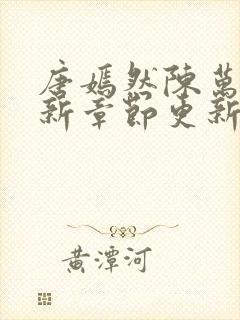 唐嫣然陳萬
新章節更新
黃潭河